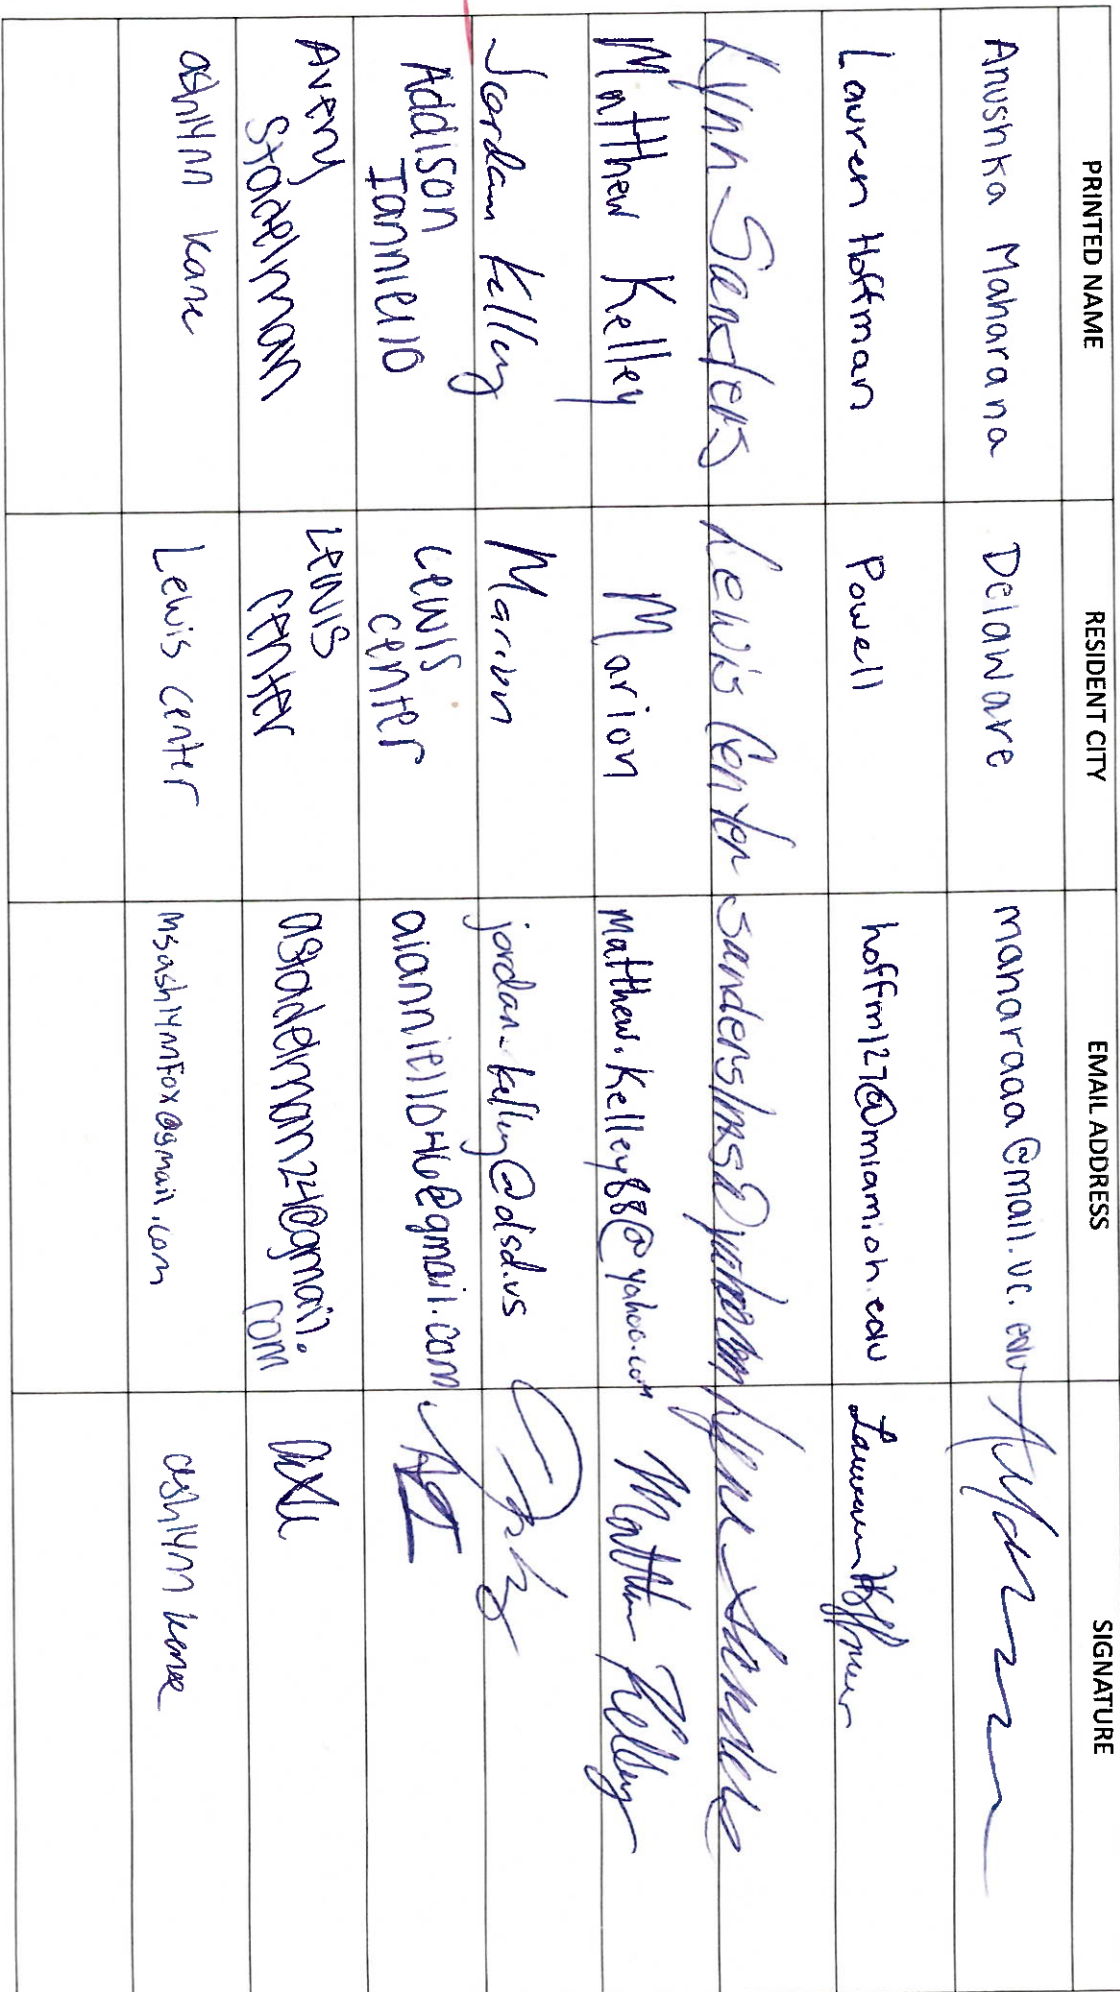 PRINTED NAME RESIDENT CITY EMAIL ADDRESS SIGNATURE
Anushka Maharana Delaware maharaaa@mail.uc.edu
Lauren Hoffman Powell hoffm127@miamioh.edu Lauren Hoffman
Lynn Sanders Lewis Center Lynn Sanders
Matthew Kelley Marion Matthew.Kelley88@yahoo.com Matthew Kelley
Jordan Kelley Marion jordan_kelley@dlsd.us
Addison Lewis aianniello46@gmail.com
Ianniello center
Avery Lewis astadelman24@gmail.
Stadelman center com
ashlynn kane Lewis center msashlynnfox@gmail.com ashlynn kane